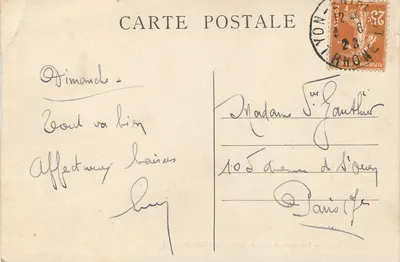 CARTE POSTALE
LYON
RHONE
25c
Dimanche -
Tout va bien
Affectueux baisers
Madame Vve Gauthier
105 avenue de St Ouen
Paris 17e